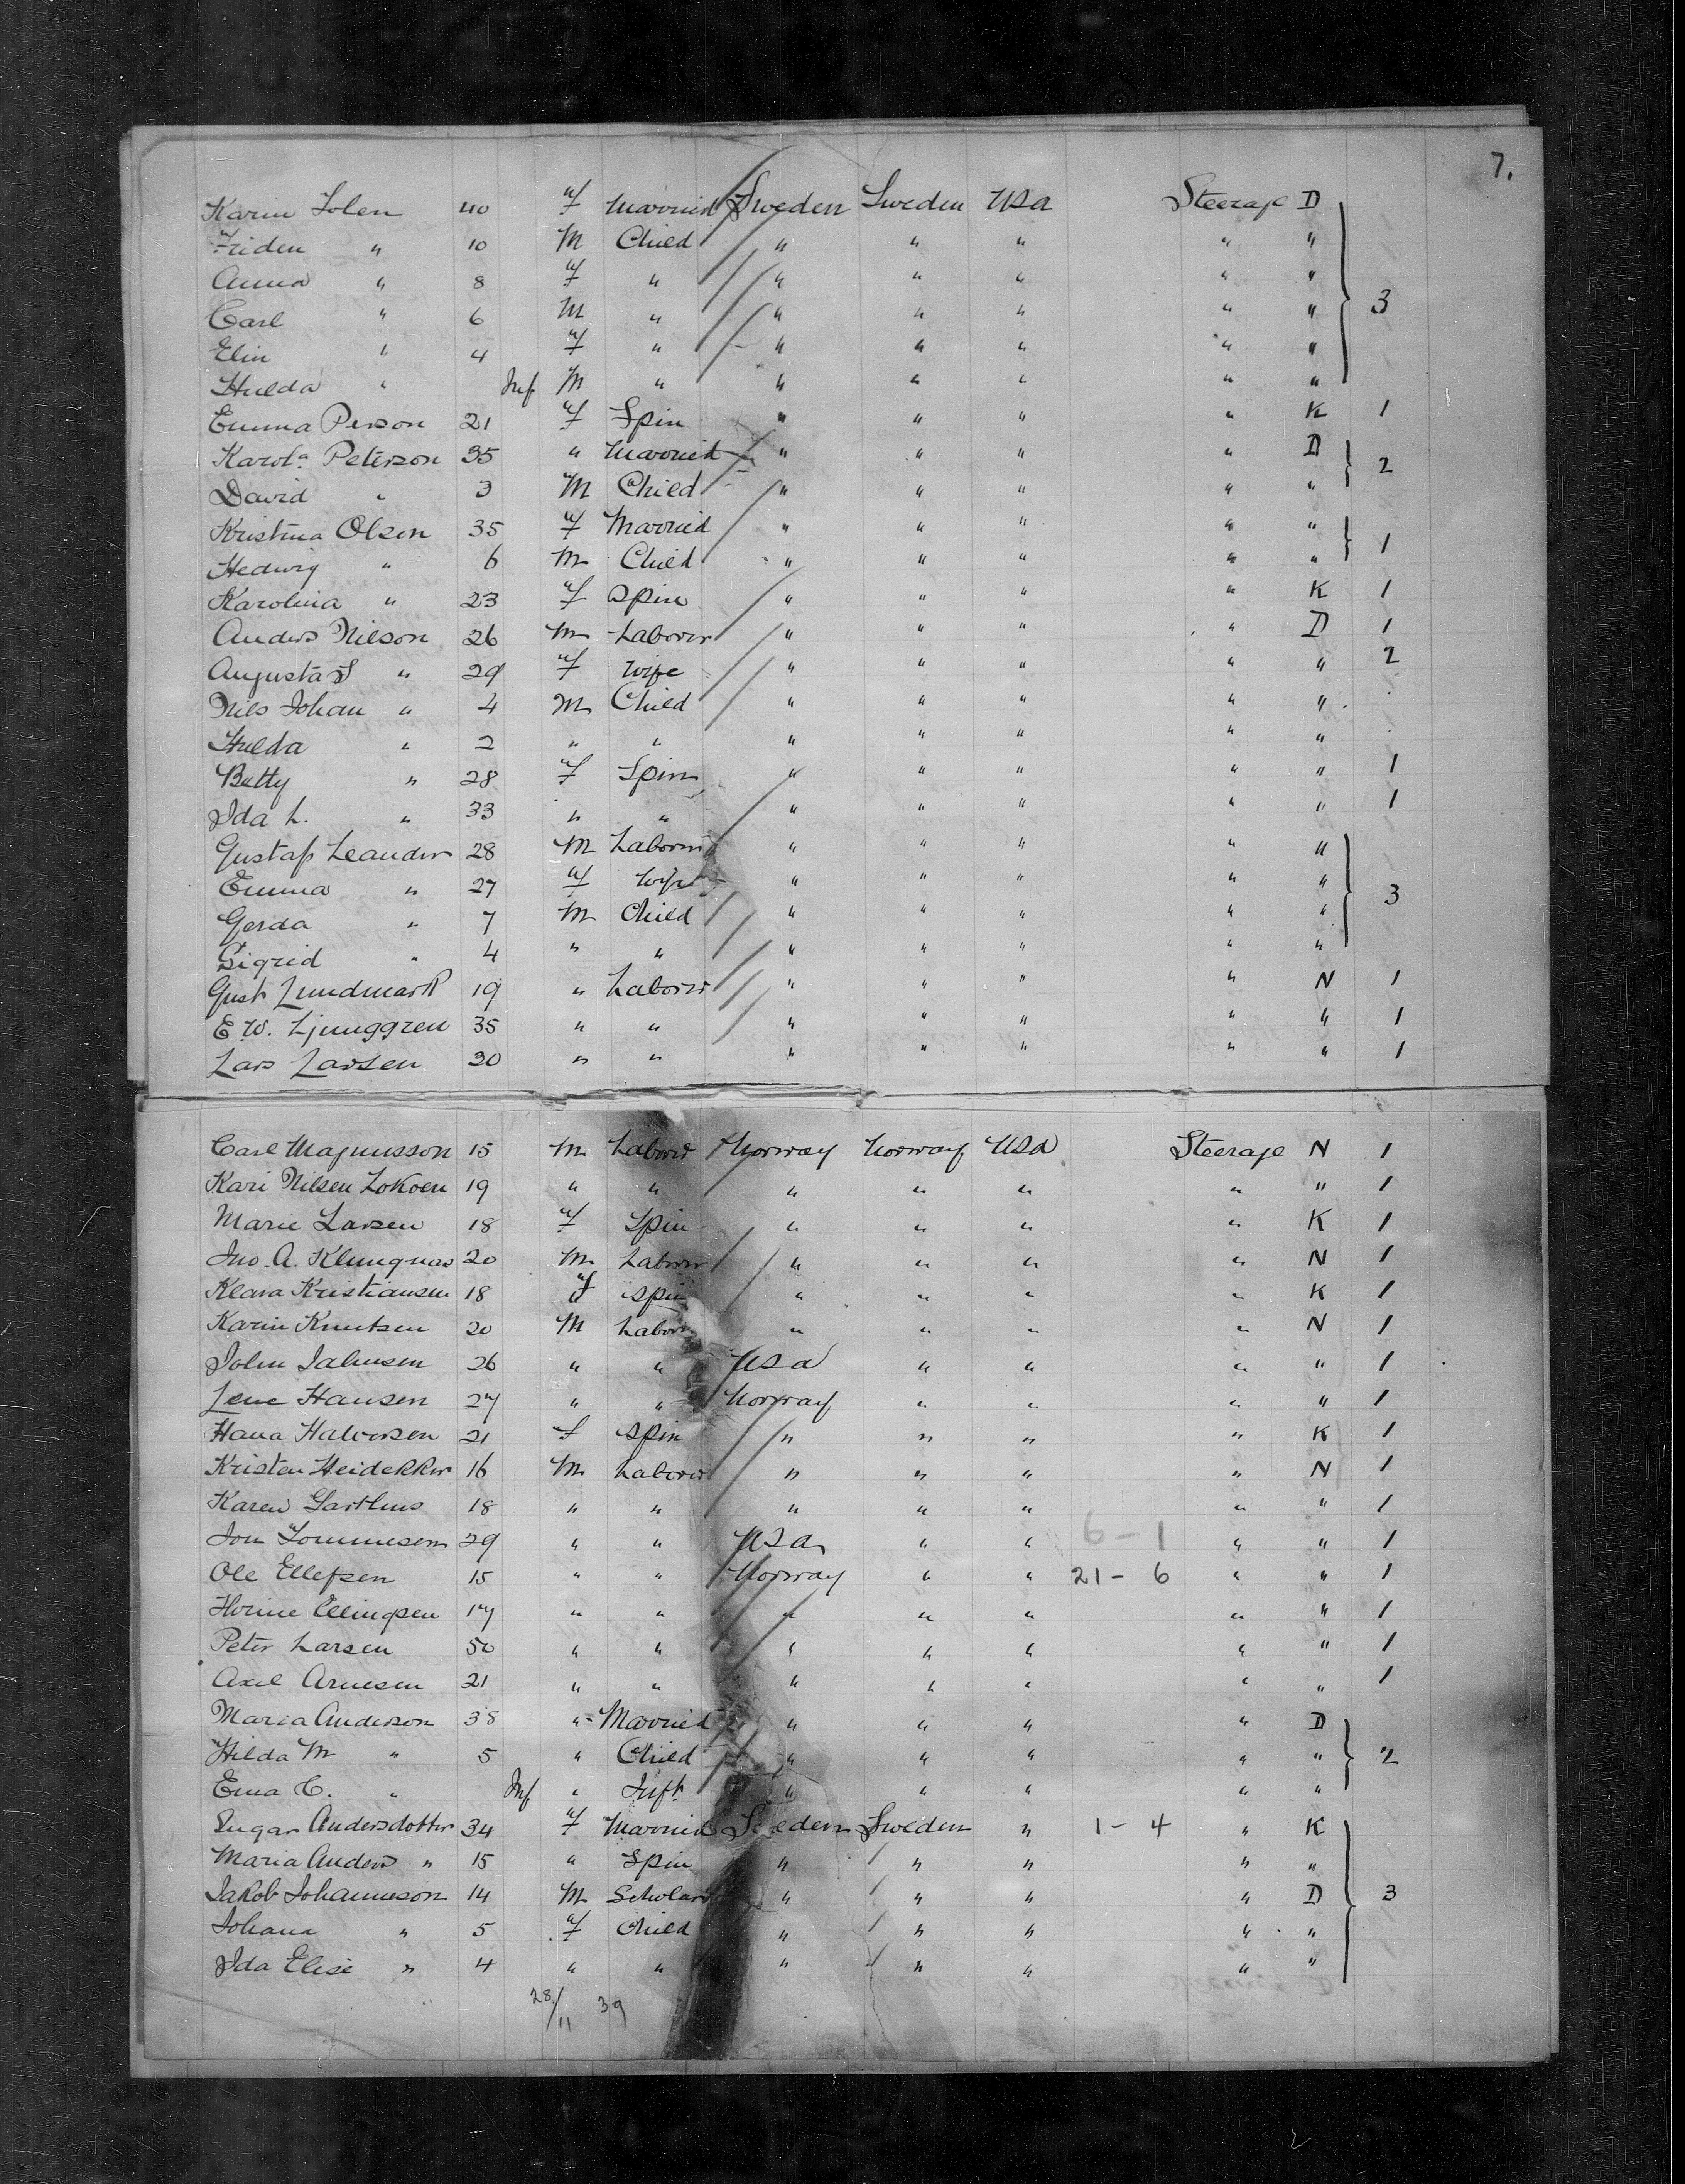 7.
Karin Solen 40 f Married Sweden Sweden USA Steerage D
Friden " 10 M Child " " " " "
Anna " 8 f " " " " " "
Carl " 6 M " " " " " " 3
Elin " 4 f " " " " " "
Hulda " Inf M " " " " " "
Emma Person 21 f Spin " " " " K 1
Karola Peterson 35 " Married " " " " D 2
David " 3 M Child " " " " "
Kristina Olsen 35 f Married " " " " "
Hedwig " 6 M Child " " " " " 1
Karolina " 23 f Spin " " " " K 1
Anders Nilson 26 M Laborer " " " " D 1
Augusta S " 29 f Wife " " " " " 2
Nils Johan " 4 M Child " " " " "
Hulda " 2 " " " " " " "
Betty " 28 f Spin " " " " " 1
Ida L. " 33 " " " " " " " 1
Gustaf Leander 28 M Laborer " " " " "
Emma " 27 f Wife " " " " " 3
Gerda " 7 M Child " " " " "
Sigrid " 4 " " " " " " "
Gust Lundmark 19 " Laborer " " " " N 1
E. W. Ljunggren 35 " " " " " " " 1
Lars Larsen 30 " " " " " " " 1
Carl Magnusson 15 M Laborer Norway Norway USA Steerage N 1
Kari Nilsen Lokoen 19 " " " " " " " 1
Marie Larsen 18 f Spin " " " " K 1
Jno. A. 20 M Laborer " " " " N 1
Klara Kristiansen 18 f Spin " " " " K 1
Karin Knutsen 20 M Laborer " " " " N 1
John Jahnsen 26 " " USA " " " " 1
Lene Hansen 27 " " Norway " " " " 1
Hana Halvorsen 21 f Spin " " " " K 1
Kristen Heidekker 16 M Laborer " " " " N 1
Karen 18 " " " " " " " 1
Jon Tommesen 29 " " USA " " 6 - 1 " " 1
Ole Ellefsen 15 " " Norway " " 21 - 6 " " 1
Ellingsen 17 " " " " " " " 1
Peter Larsen 50 " " " " " " " 1
Axel Arnesen 21 " " " " " " " 1
Maria Anderson 38 " Married " " " " D
Hilda M " 5 " Child " " " " " 2
Erna C. " Inf " Inft " " " " "
Ingar Andersdotter 34 f Married Sweden Sweden " 1 - 4 " K
Maria Anders " 15 " Spin " " " " "
Jakob Johanneson 14 M Scholar " " " " D 3
Johana " 5 f Child " " " " "
Ida Elise " 4 " " " " " " "
28/11 39